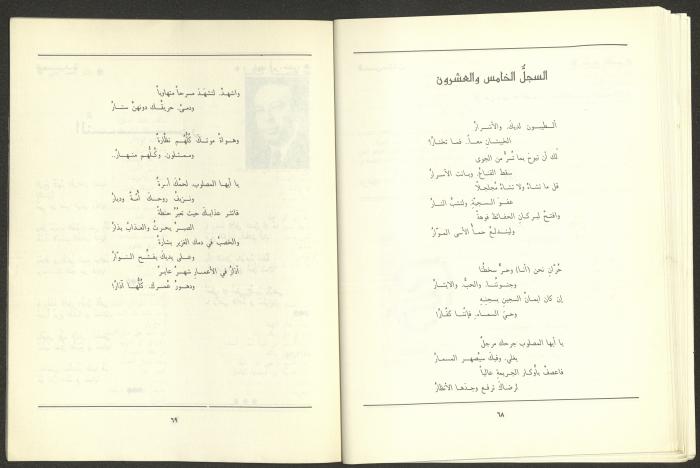 السجلُّ الخامس والعشرون
ألطيبون لديك، والأشرارُ
الطيبتان معاً. فما تختارُ؟
لك أن تبوحَ بما تُسرُّ من الجوى
سقط القناعُ، وبانت الأسرارُ
قل ما تشاءُ ولا تشاءُ مُجلجلاً
عفوَ السجيّةِ، ولتشبَّ النارُ
وافتحْ لبركانِ الحفائظِ فوهةً
وليندلعْ حممُ الأسى الموّارُ
حُرّانِ نحن (أنا) وحرُّ سخطُنا
وجنونُنا. والحبُّ. والإيثارُ
إن كان إيمانُ السجين بسجنِهِ
وحيَ السماءِ، فإنّنا كفّارُ!
يا أيها المصلوب جرحك مرجلٌ
يغلي. وفيك سيُصهر المسمارُ
فاعصفْ بأوكارِ الجريمةِ عالياً
لرضاكَ ترفع وجدَها الأنظارُ
٦٨
واشهدْ. لتشهَدَ مسرحاً متهاوياً
ودمىً. حريقُك دونهنّ ستارُ
وهواةُ موتكَ كُلُّهم نظّارةٌ
وممثلون. وكُلُّهم منهارُ..
يا أيها المصلوب. لحمُكَ أسرةٌ
ونزيفُ روحك أُمّةٌ وديارُ
فانثر عذابكَ حيث تعبُرُ حنطةً
الصبرُ يحرثُ والعذابُ بذارُ
والخصبُ في دمك الغزير بشارةٌ
وعلى يديك يفتّحُ النوّارُ
آذارُ في الأعمارِ شهرٌ عابرٌ
ودهورُ عُمرك. كُلُّها آذارُ!
٦٩